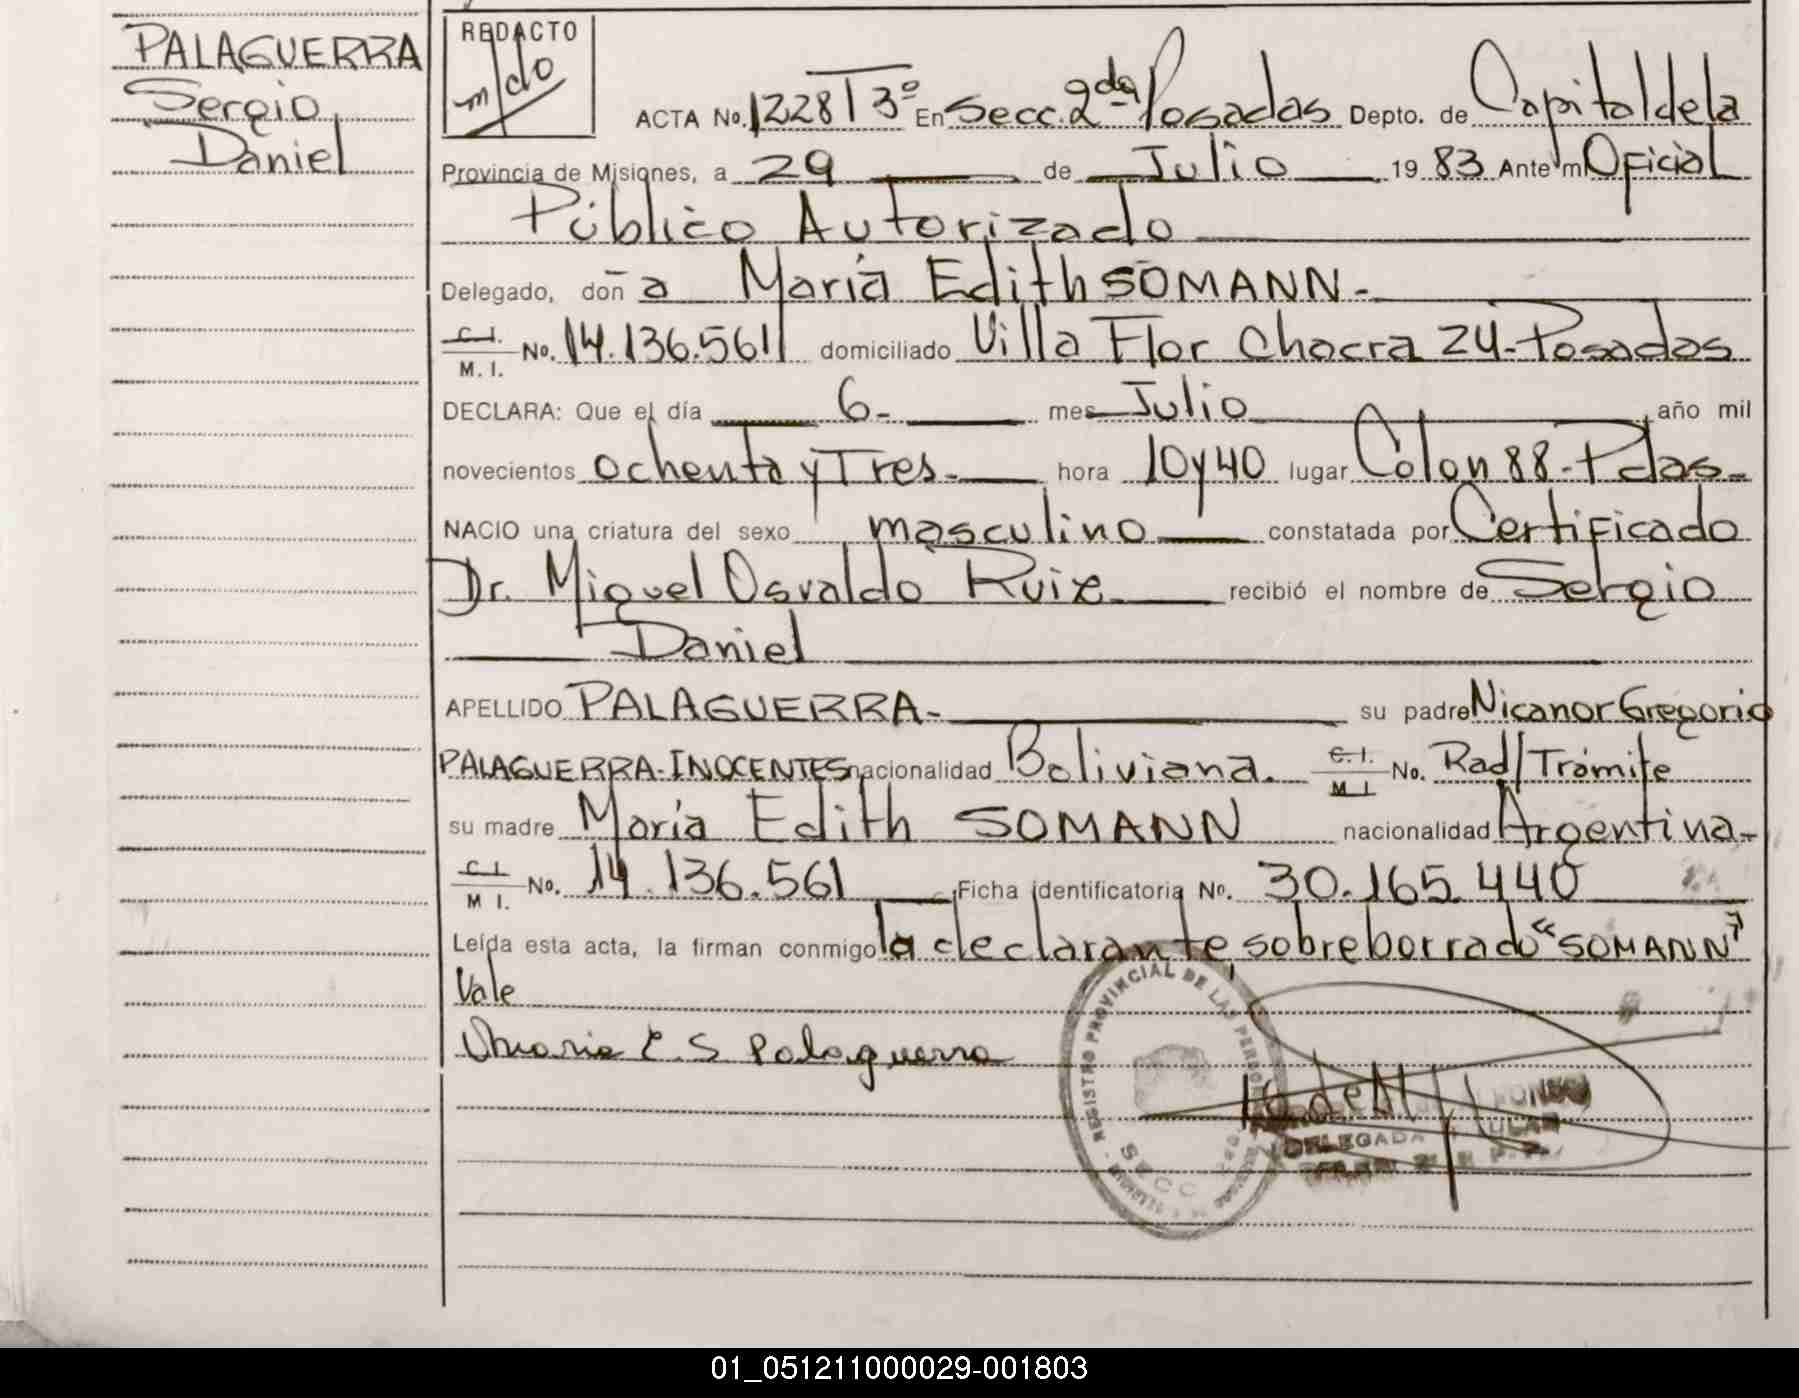 PALAGUERRA
Sergio
Daniel
REDACTO
ACTA No. 1228 T 3º En Secc. 2da Posadas Depto. de Capital de la
Provincia de Misiones, a 29 de Julio 1983 Ante mi Oficial
Público Autorizado
Delegado, doña María Edith SOMANN-
C.I. M.I. No. 14.136.561 domiciliado Villa Flor Chacra 24-Posadas
DECLARA: Que el día 6- mes Julio año mil
novecientos ochenta y Tres- hora 10 y 40 lugar Colon 88-Pdas-
NACIO una criatura del sexo masculino constatada por Certificado
Dr. Miguel Osvaldo Ruiz recibió el nombre de Sergio
Daniel
APELLIDO PALAGUERRA- su padre Nicanor Gregorio
PALAGUERRA-INOCENTES nacionalidad Boliviana. C.I. M.I. No. Rad/Trámite
su madre María Edith SOMANN nacionalidad Argentina-
C.I. M I. No. 14.136.561 Ficha identificatoria No. 30.165.440
Leída esta acta, la firman conmigo la declarante, sobreborrado "SOMANN"
Vale
Maria E. S Palaguerra
REGISTRO PROVINCIAL DE LAS PERSONAS
SECC
DELEGADA
01_051211000029-001803